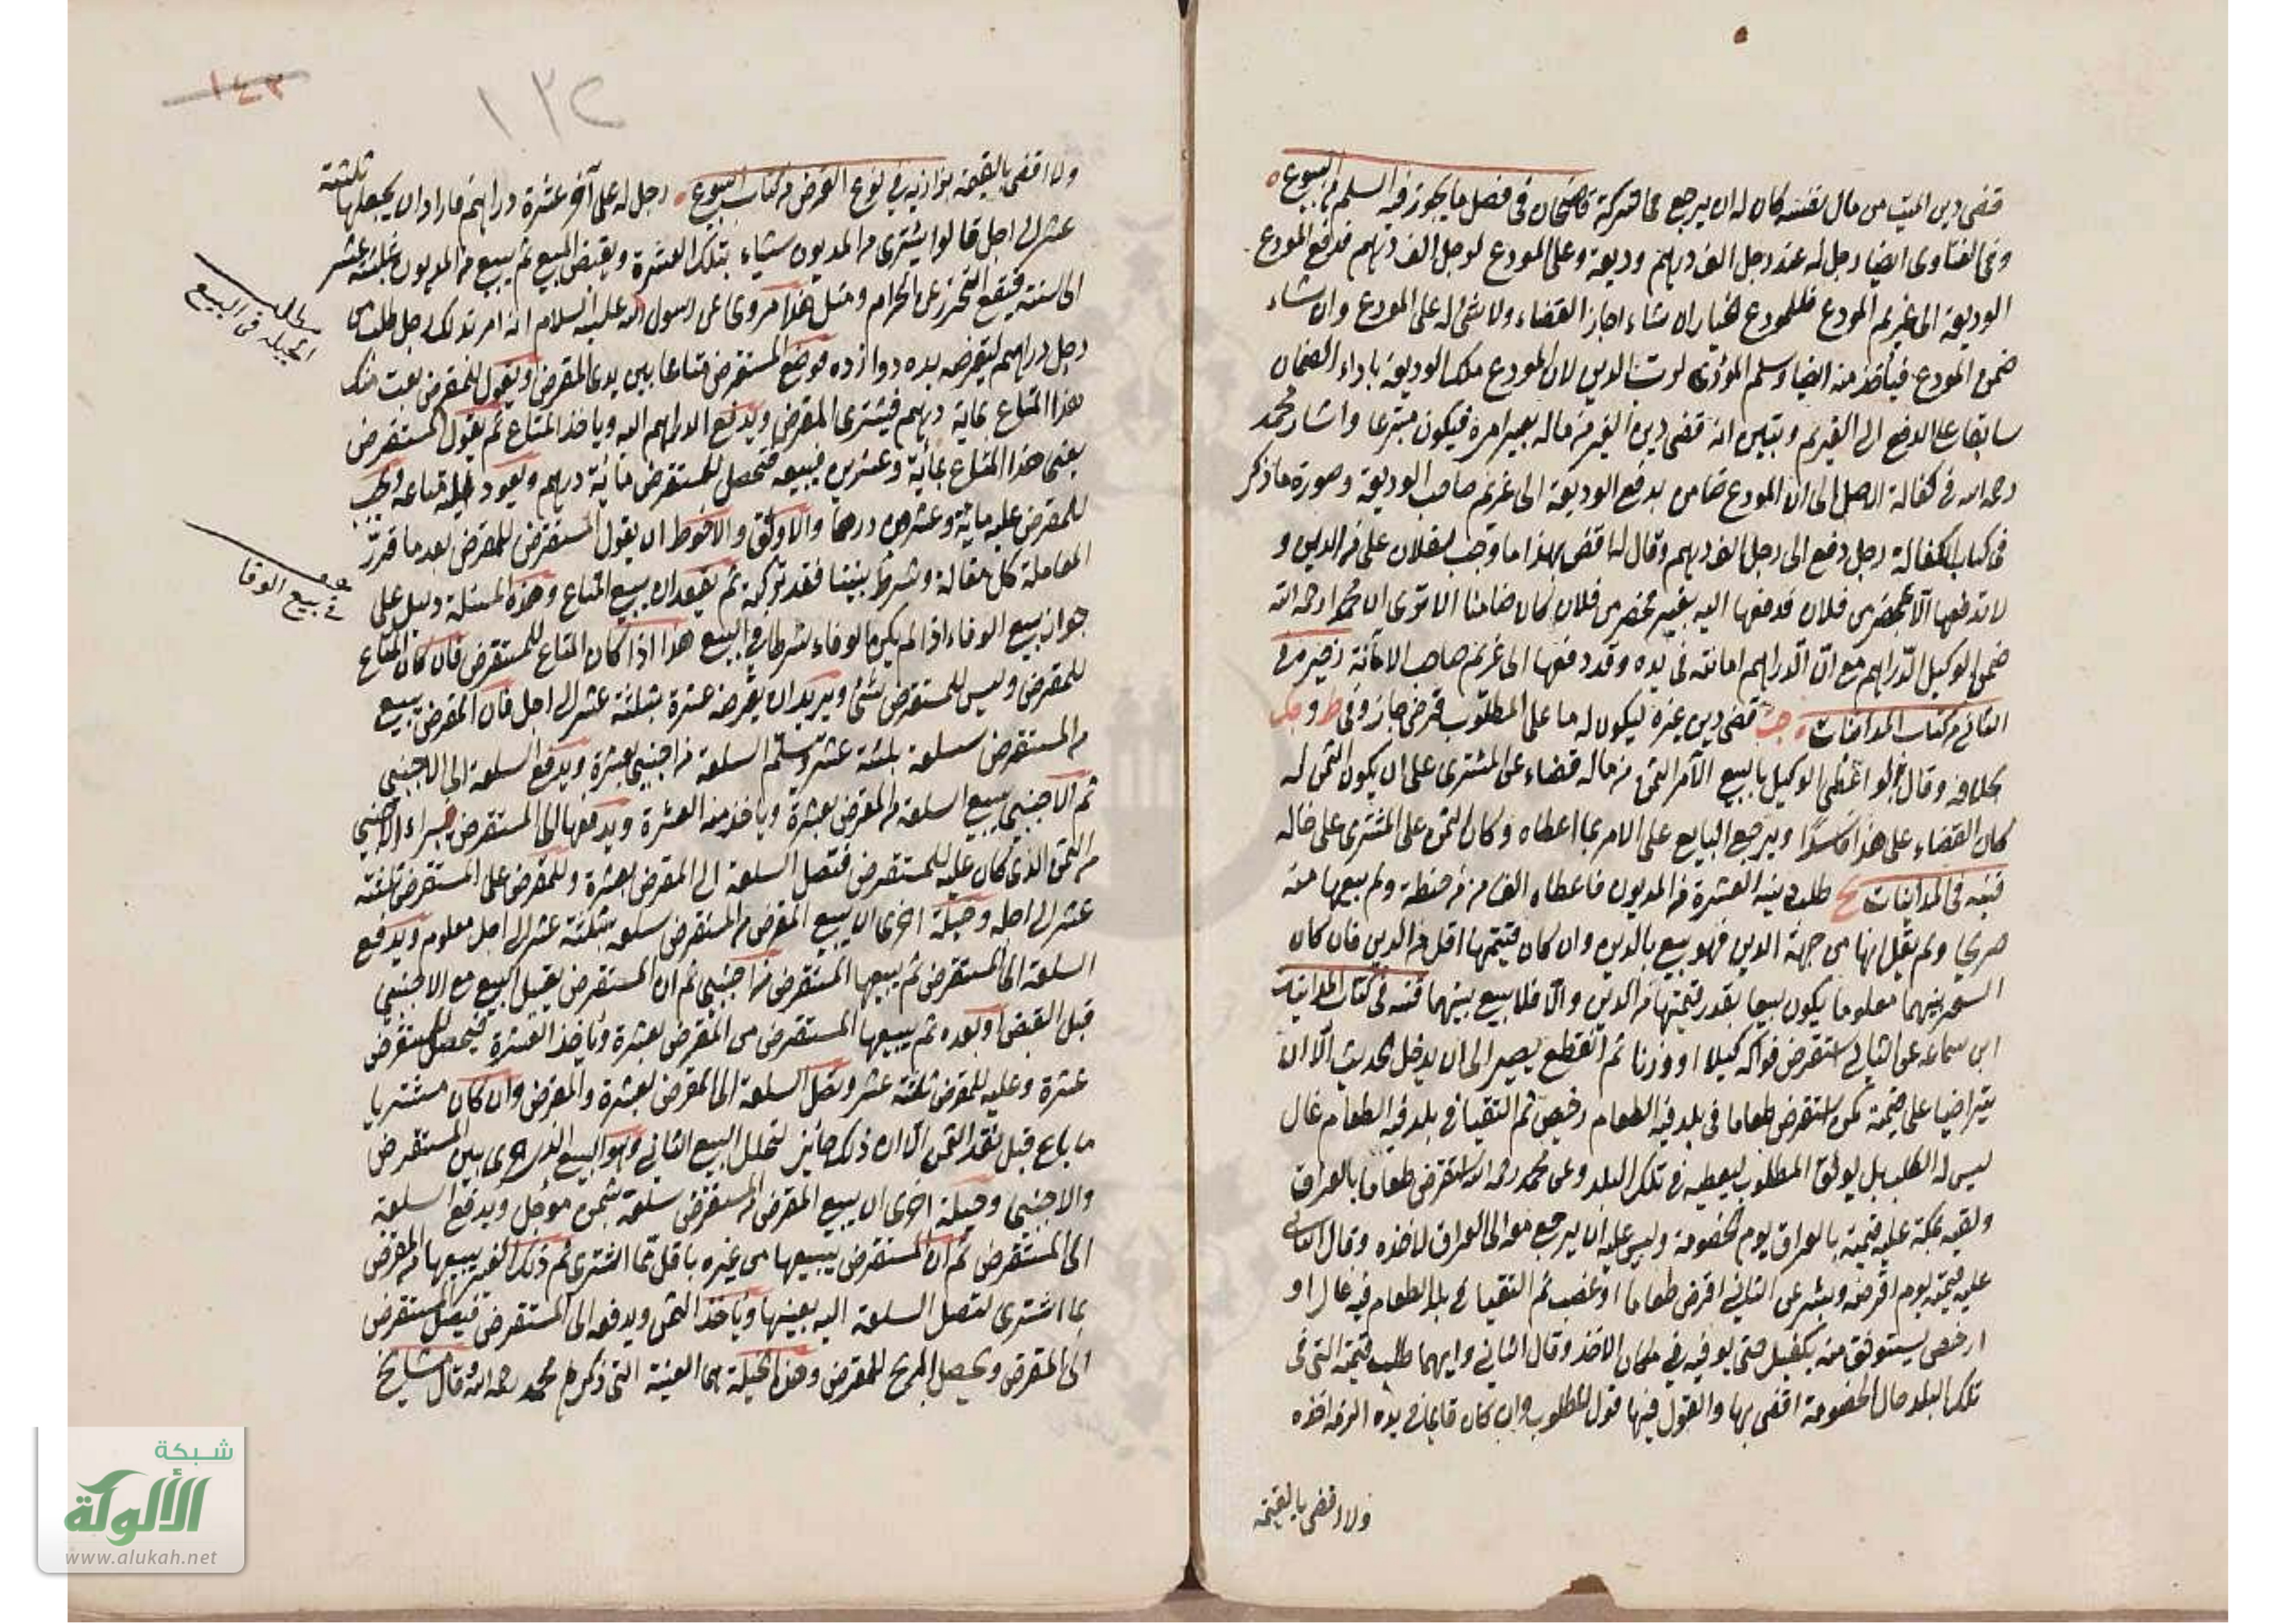 قضى دين الميت من مال نفسه كان له ان يرجع في التركة قاضيخان في فصل ما يجوز فيه السلم من البيوع
وفي الفتاوى ايضا رجل له عند رجل الف درهم وديعة وعلى المودع لرجل الف درهم فدفع المودع
الوديعة الى غريم المودع فللمودع الخيار ان شاء اجاز القضاء ولا شئ له على المودع وان شاء
ضمن المودع فيأخذ منه ايضا وسلم المؤدى لرب الدين لان المودع ملك الوديعة باداء الضمان
سابقا على الدفع الى الغريم وتبين انه قضى دين الغير من ماله بغير امره فيكون متبرعا واشار محمد
رحمه الله في كفالة الاصل الى ان المودع ضامن بدفع الوديعة الى غريم صاحب الوديعة وصورة ما ذكر
في كتاب الكفالة رجل دفع الى رجل الف درهم وقال له اقض بهذا ما وجب لفلان على من الدين و
لا تدفعها الا بمحضر من فلان فدفعها اليه بغير محضر من فلان كان ضامنا الا ترى ان محمدا رحمه الله
ضمن الوكيل الدراهم مع ان الدراهم امانة في يده وقد دفعها الى غريم صاحب الامانة ذخيره في
الثاني من كتاب المداينات قضى دين غيره ليكون له ما على المطلوب فرضي جاز وفي ط و
بخلافه وقال ولو اعطى الوكيل بالبيع الآمر الثمن من ماله قضاء عن المشترى على ان يكون الثمن له
كان القضاء على هذا فاسدا ويرجع البايع على الامر بما اعطاه وكان الثمن على المشترى على حاله
قنيه في المداينات طلب دينه العشرة من المديون فاعطاه الف من من حنطة ولم يبيعها منه
صريحا ولم يقل انها من جهة الدين فهو بيع بالدين وان كان قيمتها اقل من الدين فان كان
السعر بينهما معلوما يكون بيعا بقدر قيمتها من الدين والا فلا بيع بينهما قنيه في كتاب المداينات
ابن سماعة عن الثاني استقرض فواكه كيلا او وزنا ثم انقطع يصير الى ان يدخل الحديث الا ان
يتراضيا على قيمة كمن استقرض طعاما في بلد فيه الطعام رخيص ثم التقيا في بلد فيه الطعام غال
ليس له الطلب بل يوثق المطلوب ليعطيه في تلك البلد وعن محمد رحمه الله استقرض طعاما بالعراق
ولقيه بمكة عليه قيمته بالعراق يوم الخصومة وليس عليه ان يرجع معه الى العراق لاخذه وقال الثاني
عليه قيمته يوم اقرضه وبشر عن الثاني اقرض طعاما او غصب ثم التقيا في بلد الطعام فيه غال او
ارخص يستوثق منه بكفيل حتى يوفيه في مكان الاخذ وقال الثاني وايهما طلب قيمته التي في
تلك البلد حال الخصومة اقضى بها والقول فيها قول المطلوب وان كان قايما في يده الزم اخذه
ولا اقضى بالقيمة
١٤٣
١٣٢
ولا اقضى بالقيمة بزازيه في نوع القرض من كتاب البيوع رجل له على آخر عشرة دراهم فاراد ان يجعلها ثلثة
عشر الى اجل قالوا يشترى من المديون شياء بتلك العشرة ويقبض المبيع ثم يبيع من المديون بثلثة عشر
الى سنة فيقع التحرز عن الحرام ومثل هذا مروى عن رسول الله عليه السلام انه امر بذلك رجل طلب من
مطلب
الحيلة في البيع
رجل دراهم ليقرضه بده دوازده فوضع المستقرض متاعا بين يدى المقرض ويقول للمقرض بعت منك
هذا المتاع بماية درهم فيشترى المقرض ويدفع الدراهم اليه وياخذ المتاع ثم يقول المستقرض
بعنى هذا المتاع بمائة وعشرين فيبيعه فتحصل للمستقرض مائة درهم ويعود اليه متاعه ويجب
للمقرض عليه مائة وعشرون درهما والاوثق والاحوط ان يقول المستقرض للمقرض بعد ما قرر
المعاملة كل مقالة وشرط بيننا فقد تركته ثم يعقدان بيع المتاع وهذه المسئلة دليل على
في بيع الوفا
جواز بيع الوفاء اذا لم يكن الوفاء شرطا في البيع هذا اذا كان المتاع للمستقرض فان كان المتاع
للمقرض وليس للمستقرض شئ ويريد ان يقرضه عشرة بثلثة عشر الى اجل فان المقرض يبيع
من المستقرض سلعة بثلثة عشر وسلم السلعة من اجنبي بعشرة ويدفع السلعة الى الاجنبي
ثم الاجنبي يبيع السلعة من المقرض بعشرة وياخذ منه العشرة ويدفعها الى المستقرض فيبراء الاجنبي
من الثمن الذى كان عليه للمستقرض فتصل السلعة الى المقرض بعشرة وللمقرض على المستقرض ثلثة
عشر الى اجله وحيلة اخرى ان يبيع المقرض من المستقرض سلعة بثلثة عشر الى اجل معلوم ويدفع
السلعة الى المستقرض ثم يبيعها المستقرض من اجنبي ثم ان المستقرض يقيل البيع مع الاجنبي
قبل القبض او بعده ثم يبيعها المستقرض من المقرض بعشرة وياخذ العشرة فيحصل للمستقرض
عشرة وعليه للمقرض ثلثة عشر وتصل السلعة الى المقرض بعشرة والمقرض وان كان مشتريا
ما باع قبل نقد الثمن الا ان ذلك جائز لتخلل البيع الثاني وهو البيع الذى جرى بين المستقرض
والاجنبي وحيلة اخرى ان يبيع المقرض من المستقرض سلعة بثمن مؤجل ويدفع السلعة
الى المستقرض ثم ان المستقرض يبيعها من غيره باقل مما اشترى ثم ذلك الغير يبيعها من المقرض
بما اشترى لتصل السلعة اليه بعينها وياخذ الثمن ويدفعه الى المستقرض فيصل المستقرض
الى القرض ويحصل الربح للمقرض وهذه الحيلة هى العينة التي ذكرها محمد رحمه الله وقال مشايخ
شبكة
الألوكة
www.alukah.net